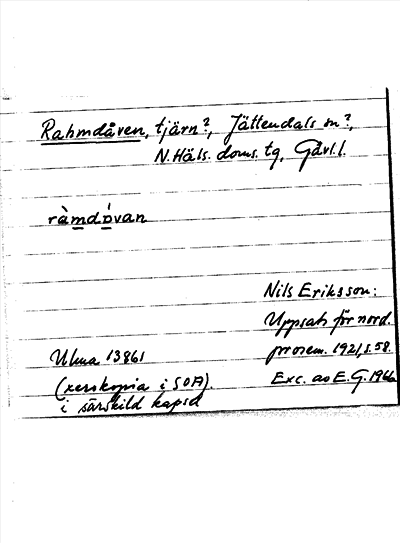 Rahmdåven, tjärn?, Jättendals sn?,
N. Häls. doms. tg, Gävl. l.
ràmdåvan
Nils Eriksson:
Uppsats för nord.
Ulma 13861 prosem. 1921, s. 58.
(xerokopia i SOA). Exc. av E. G. 1966
i särskild kapsel